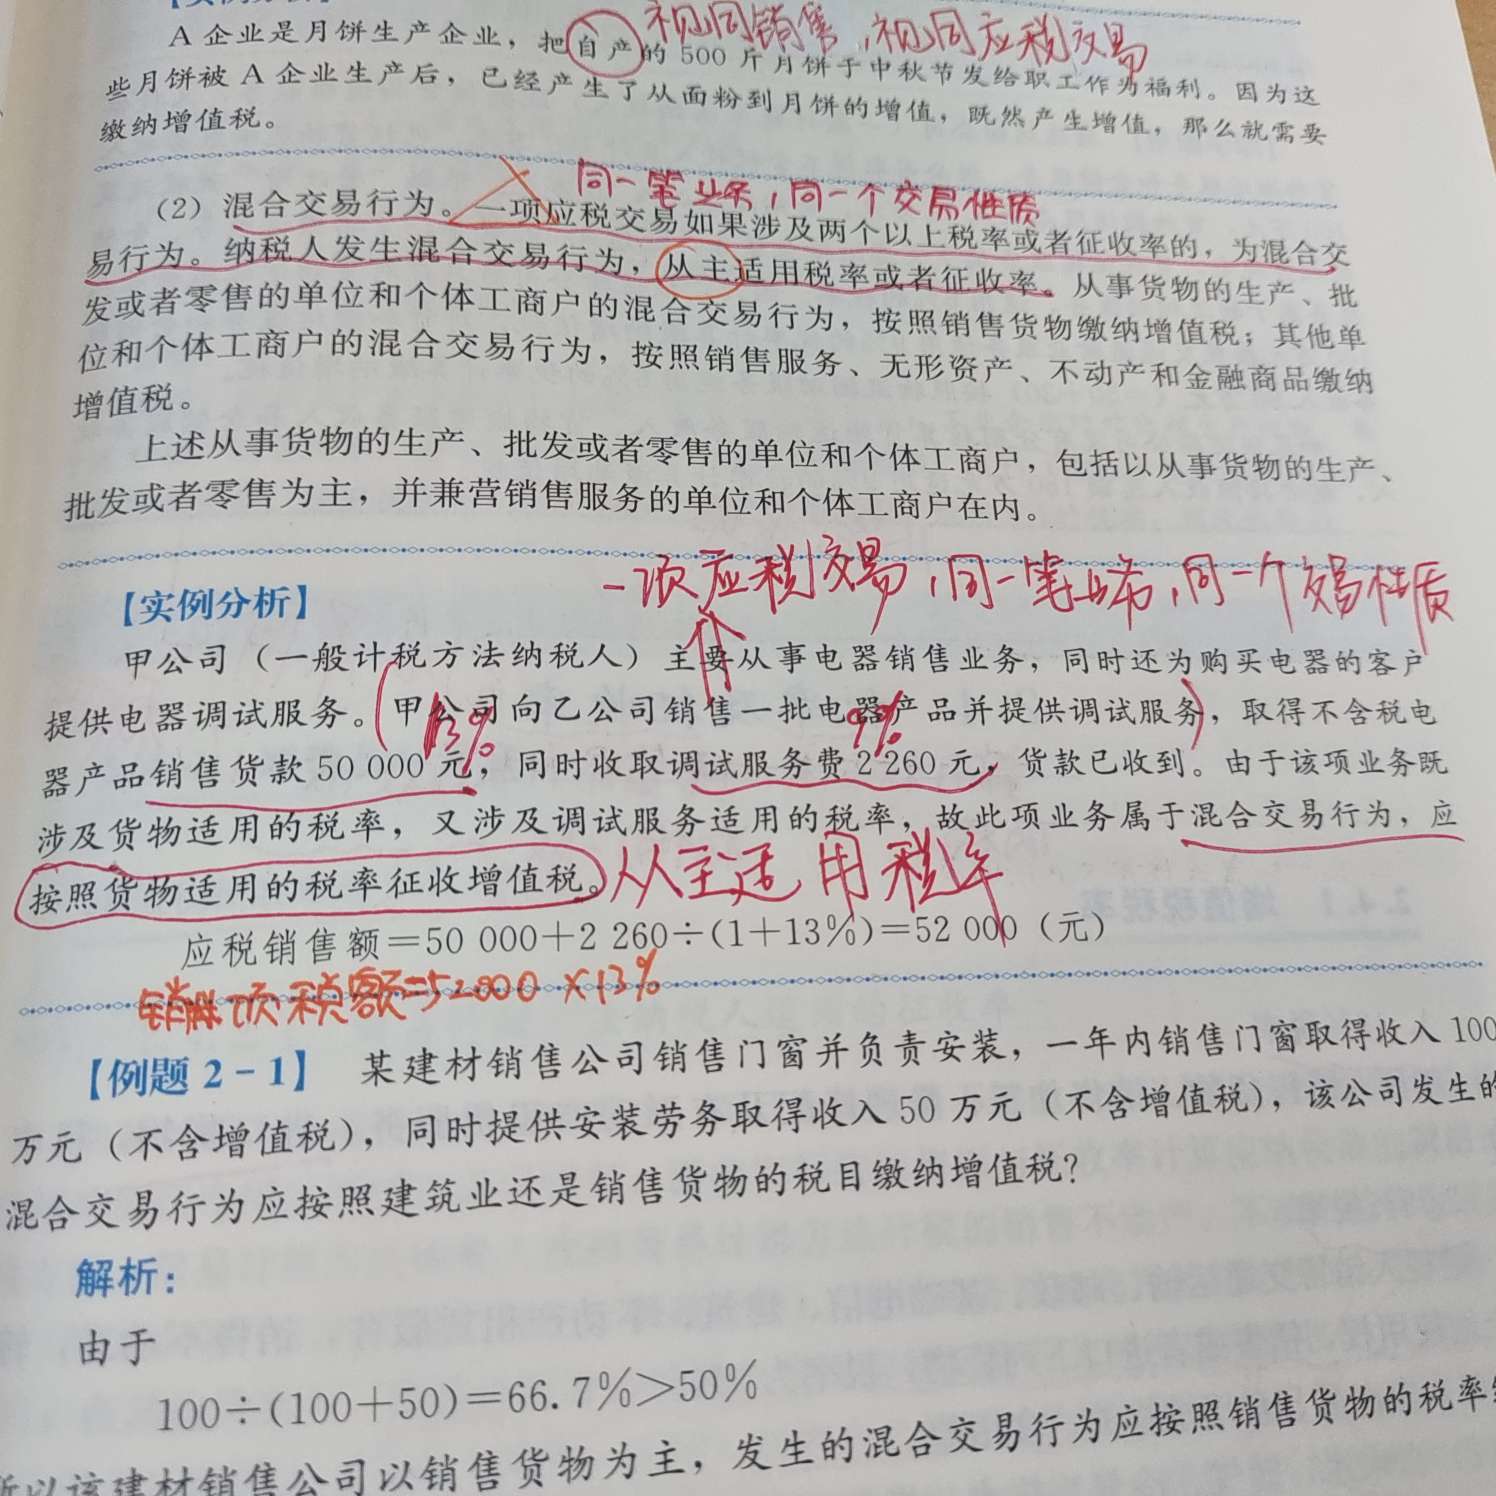 视同销售，视同应税交易
A企业是月饼生产企业，把自产的500斤月饼于中秋节发给职工作为福利。因为这
些月饼被A企业生产后，已经产生了从面粉到月饼的增值，既然产生增值，那么就需要
缴纳增值税。
同一笔业务，同一个交易性质
（2）混合交易行为。一项应税交易如果涉及两个以上税率或者征收率的，为混合交
易行为。纳税人发生混合交易行为，从主适用税率或者征收率。从事货物的生产、批
发或者零售的单位和个体工商户的混合交易行为，按照销售货物缴纳增值税；其他单
位和个体工商户的混合交易行为，按照销售服务、无形资产、不动产和金融商品缴纳
增值税。
上述从事货物的生产、批发或者零售的单位和个体工商户，包括以从事货物的生产、
批发或者零售为主，并兼营销售服务的单位和个体工商户在内。
一项应税交易，同一笔业务，同一个交易性质
【实例分析】
甲公司（一般计税方法纳税人）主要从事电器销售业务，同时还为购买电器的客户
提供电器调试服务。甲公司向乙公司销售一批电器产品并提供调试服务，取得不含税电
13%
器产品销售货款50 000元，同时收取调试服务费2 260元，货款已收到。由于该项业务既
涉及货物适用的税率，又涉及调试服务适用的税率，故此项业务属于混合交易行为，应
按照货物适用的税率征收增值税。从主适用税率
应税销售额＝50 000＋2 260÷(1＋13%)＝52 000（元）
销项税额=52000×13%
【例题2-1】 某建材销售公司销售门窗并负责安装，一年内销售门窗取得收入100
万元（不含增值税），同时提供安装劳务取得收入50万元（不含增值税），该公司发生的
混合交易行为应按照建筑业还是销售货物的税目缴纳增值税？
解析：
由于
100÷(100＋50)＝66.7%＞50%
所以该建材销售公司以销售货物为主，发生的混合交易行为应按照销售货物的税率